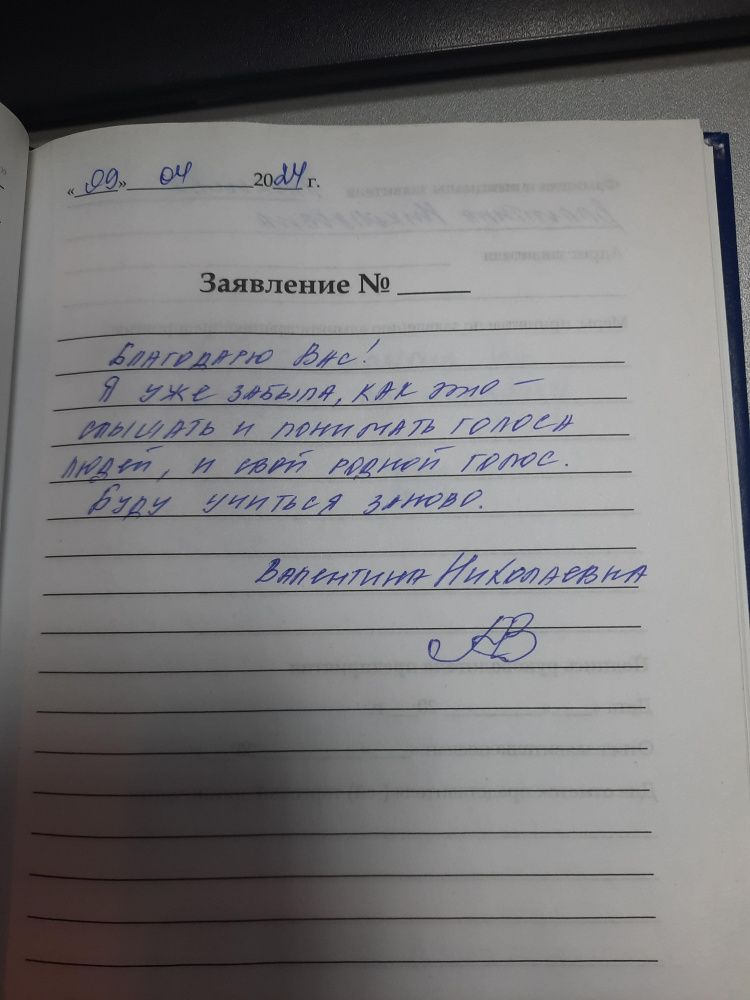 «09» 04 2024 г.
Заявление № ____
Благодарю Вас!
Я уже забыла, как это –
слышать и понимать голоса
людей, и свой родной голос.
Буду учиться заново.
Валентина Николаевна